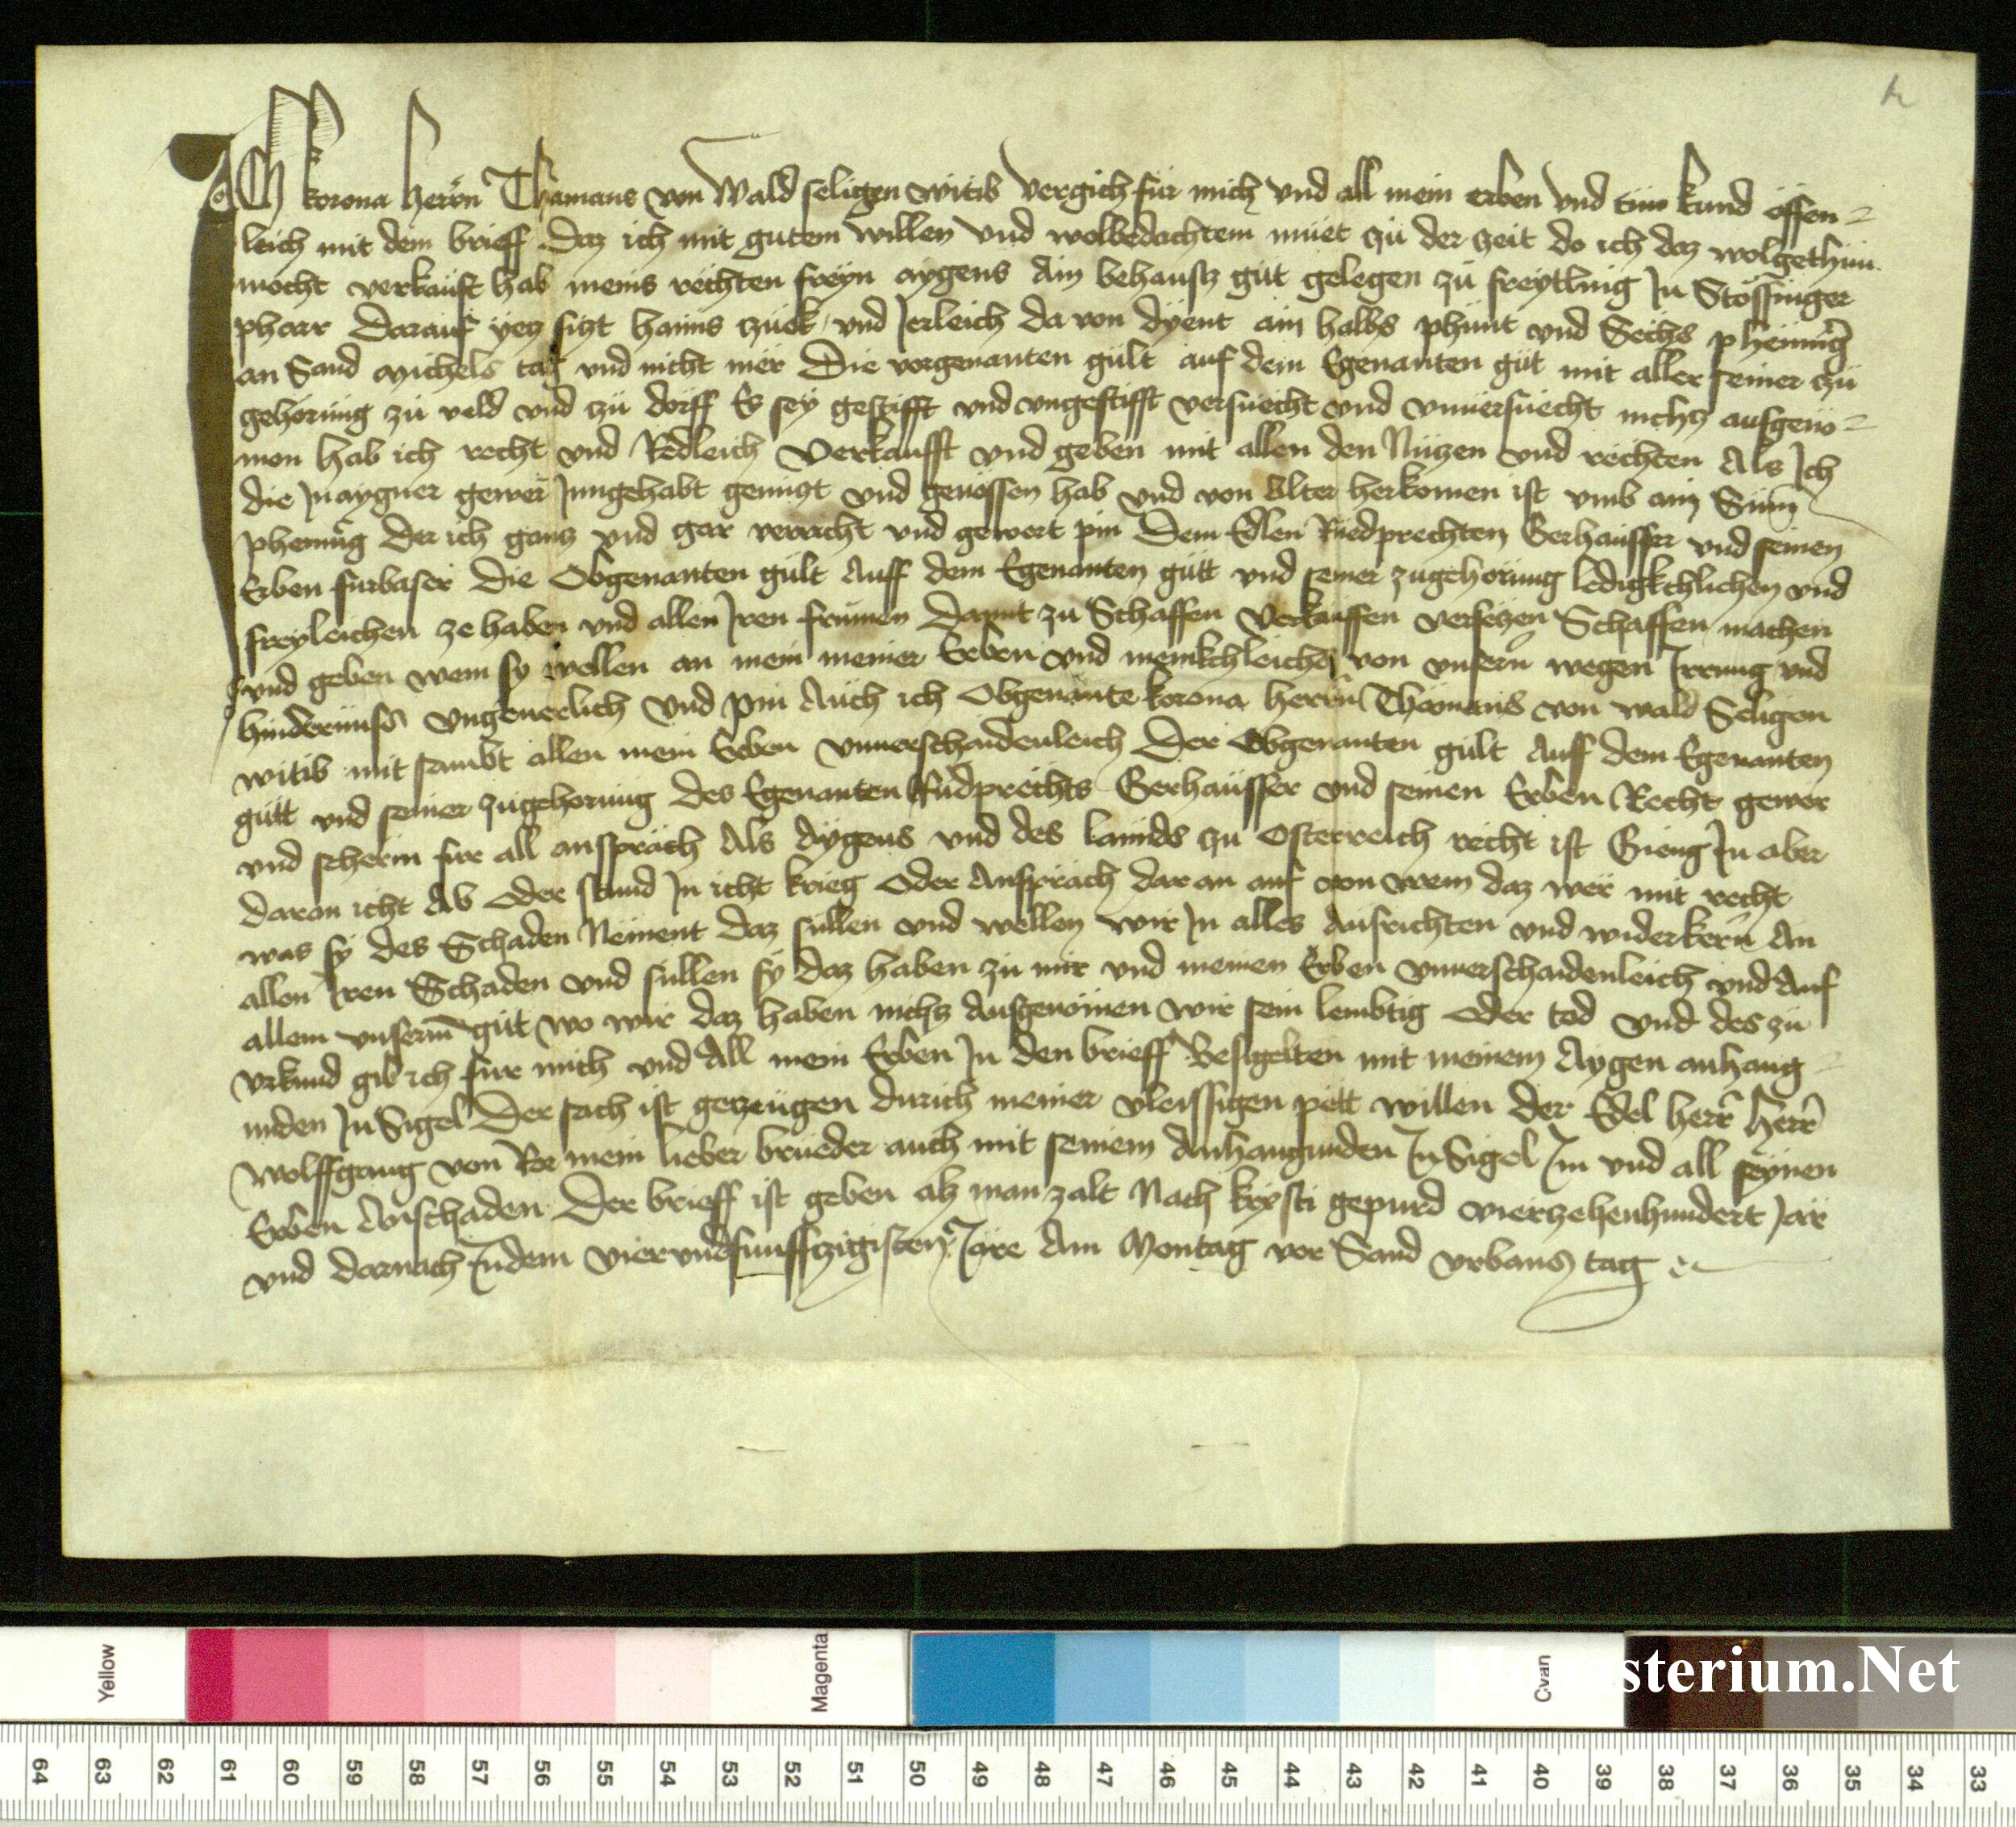 Ich korona herrn Thamans von Wald seligen witib vergich fur mich und all mein erben und tun kund offen-
leich mit dem brieff Daz ich mit gutem willen und wolbedachtem muet zu der zeit do ich daz wolgethun
mocht verkauft hab meins rechten freyn aygens Ain behaustz gut gelegen zu freytling In Stössinger
pharr Darauf yetz sitzt hanns und Jerleich da von dyent ain halbs phunt und Sechs phenning
an Sand Michels tag und nicht mer Die vorgenanten gult auf dem Egenanten gut mit aller seiner zu
gehorung zu veld und zu dorff Es sey gestifft und ungestifft versuecht und unversuecht nichtz ausgeno-
men hab ich recht und Redleich Verkaufft und geben mit allen den Nutzen und rechten Als Ich
die In aygner gewer Inngehabt genutzt und genossen hab und von Alter herkomen ist umb ain Summ
phenning der ich gantz und gar verricht und gewert pin Dem Edlen Ruedprechten Gerhausser und seinen
Erben furbaser Die Obgenanten gult Auff dem Egenanten gutt und seiner zugehorung ledigkchlichen und
freyleichen ze haben und allen Iren frumen damit zu Schaffen Verkauffen versetzen Schaffen machen
und geben wem sy wellen an mein meiner Erben und menikchleichs von unsern wegen Irrung und
hindernuss ungeverlich Und pin Auch ich Obgenante korona herrn Thomans von wald Seligen
witib mit sambt allen mein Erben unverschaidenleich Der Obgenanten gult Auf dem Egenanten
gutt und seiner zugehorung des Egenanten Rudprechts Gerhausser und seinen Erben Recht gewer
und scherm fur all ansprach Als Aygens und des lannds zu Osterreich recht ist Gieng In aber
daran icht Ab oder stund In icht krieg oder Ansprach daran auf von wem daz wer mit recht
was sy des Schaden Nement daz sullen und wellen wir In alles Ausrichten und widerkern An
allen Iren Schaden und sullen sy daz haben zu mir und meinen Erben unverschaidenleich und Auf
allem unserm gut wo wir daz haben nichtz Ausgenomen wir sein lembtig oder tod Und des zu
urkund gib ich fur mich und All mein Erben In den brieff Besigelten mit meinem Aygen anhang-
unden InSigel Der sach ist getzeugen durich meiner vleissigen pett willen Der Edel herr herr
Wolffgang von Ror mein lieber brueder auch mit seinem Anhangunden InSigel Im und all seynen
Erben Anschaden Der brieff ist geben als man zalt Nach kristi gepurd vierzehenhundert Jar
und darnach In dem vierundfunffzigisten Jare Am Montag vor Sand Urbans tag
Yellow
Magenta
Cyan
sterium.Net
64 63 62 61 60 59 58 57 56 55 54 53 52 51 50 49 48 47 46 45 44 43 42 41 40 39 38 37 36 35 34 33